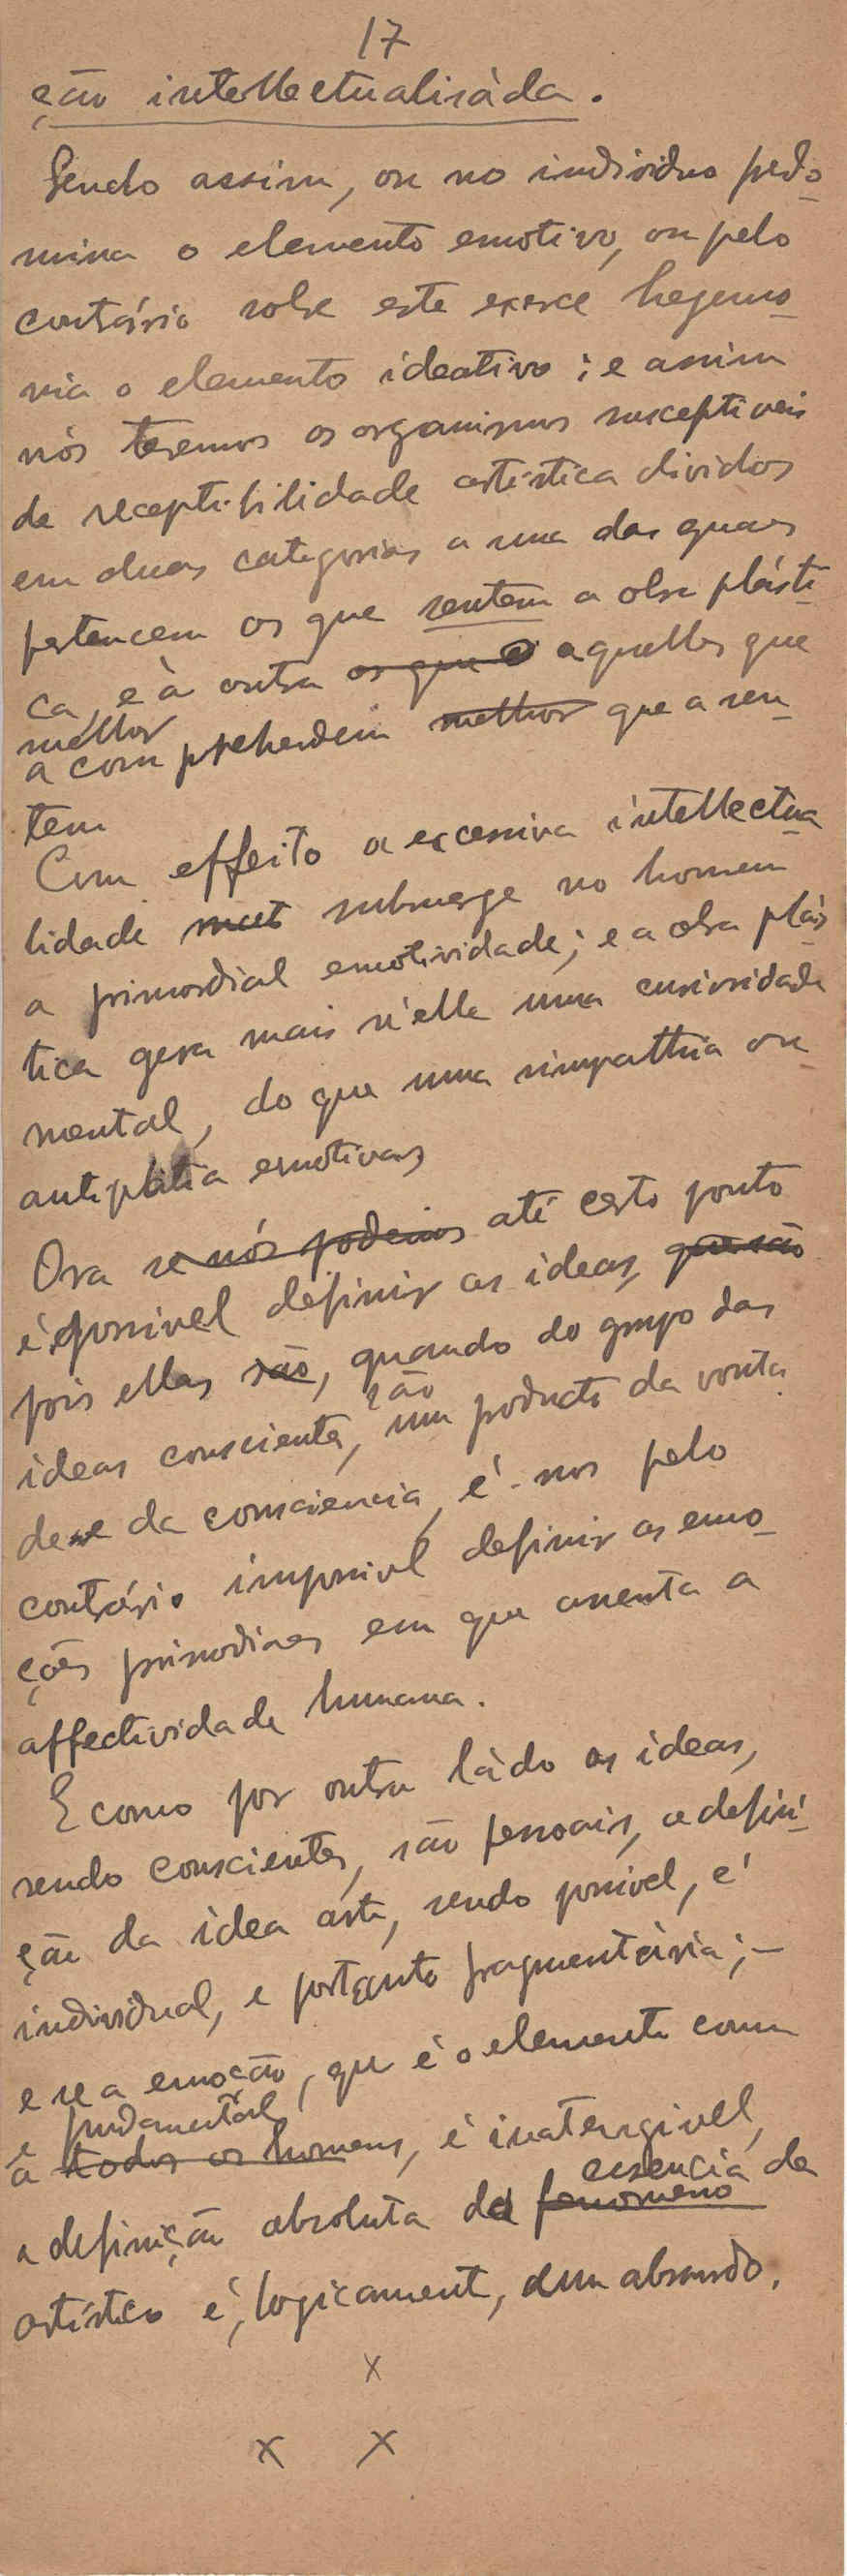 17
ção intellectualisàda.
Sendo assim, ou no individuo predo
mina o elemento emotivo, ou pelo
contrário sobre este exerce hegemo
nia o elemento ideativo; e assim
nós teremos os organismos susceptiveis
de receptibilidade artística dividos
em duas categorias a uma das quaes
pertencem os que sentem a obra plásti
ca, e à outra os que o aquelles que
melhor
a comprehendem melhor que a sen
tem
Com effeito a excessiva intellectua
lidade submerge no homem
a primordial emotividade; e a obra plás
tica gera mais n'elle uma curiosidade
mental, do que uma simpathia ou
antipatia emotivas
Ora se nós podemos até certo ponto
é possivel definir as ideas, que são
pois ellas são, quando do grupo das
são
ideas conscientes, um producto da vonta
de e da consciencia, é-nos pelo
contrário impossivel definir as emo
ções primordiaes em que assenta a
affectividade humana.
E como por outro làdo as ideas,
sendo conscientes, são pessoais, a defini
ção da idea arte, sendo possivel, é
individual, e portanto fragmentária;—
e se a emoção, que é o elemento comum
e fundamental
a todos os homens, é inatengivel,
essencia da
a definição absoluta do fenomeno
artístico é, logicament, um absurdo.
x
x x